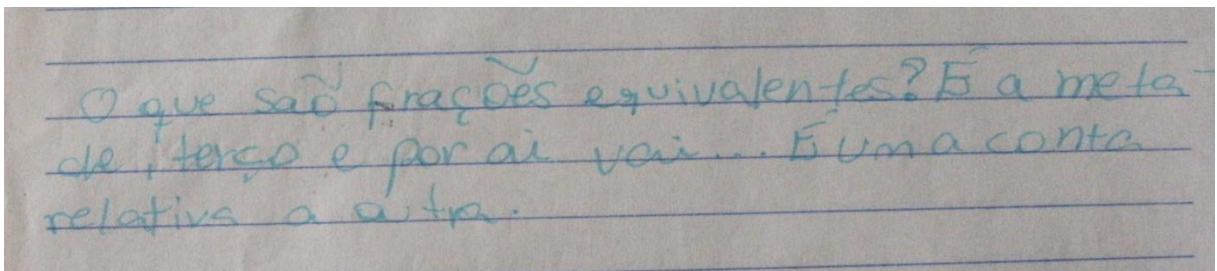 O que são frações equivalentes? É a meta-
de, terço e por ai vai... É uma conta
relativa a a tra.